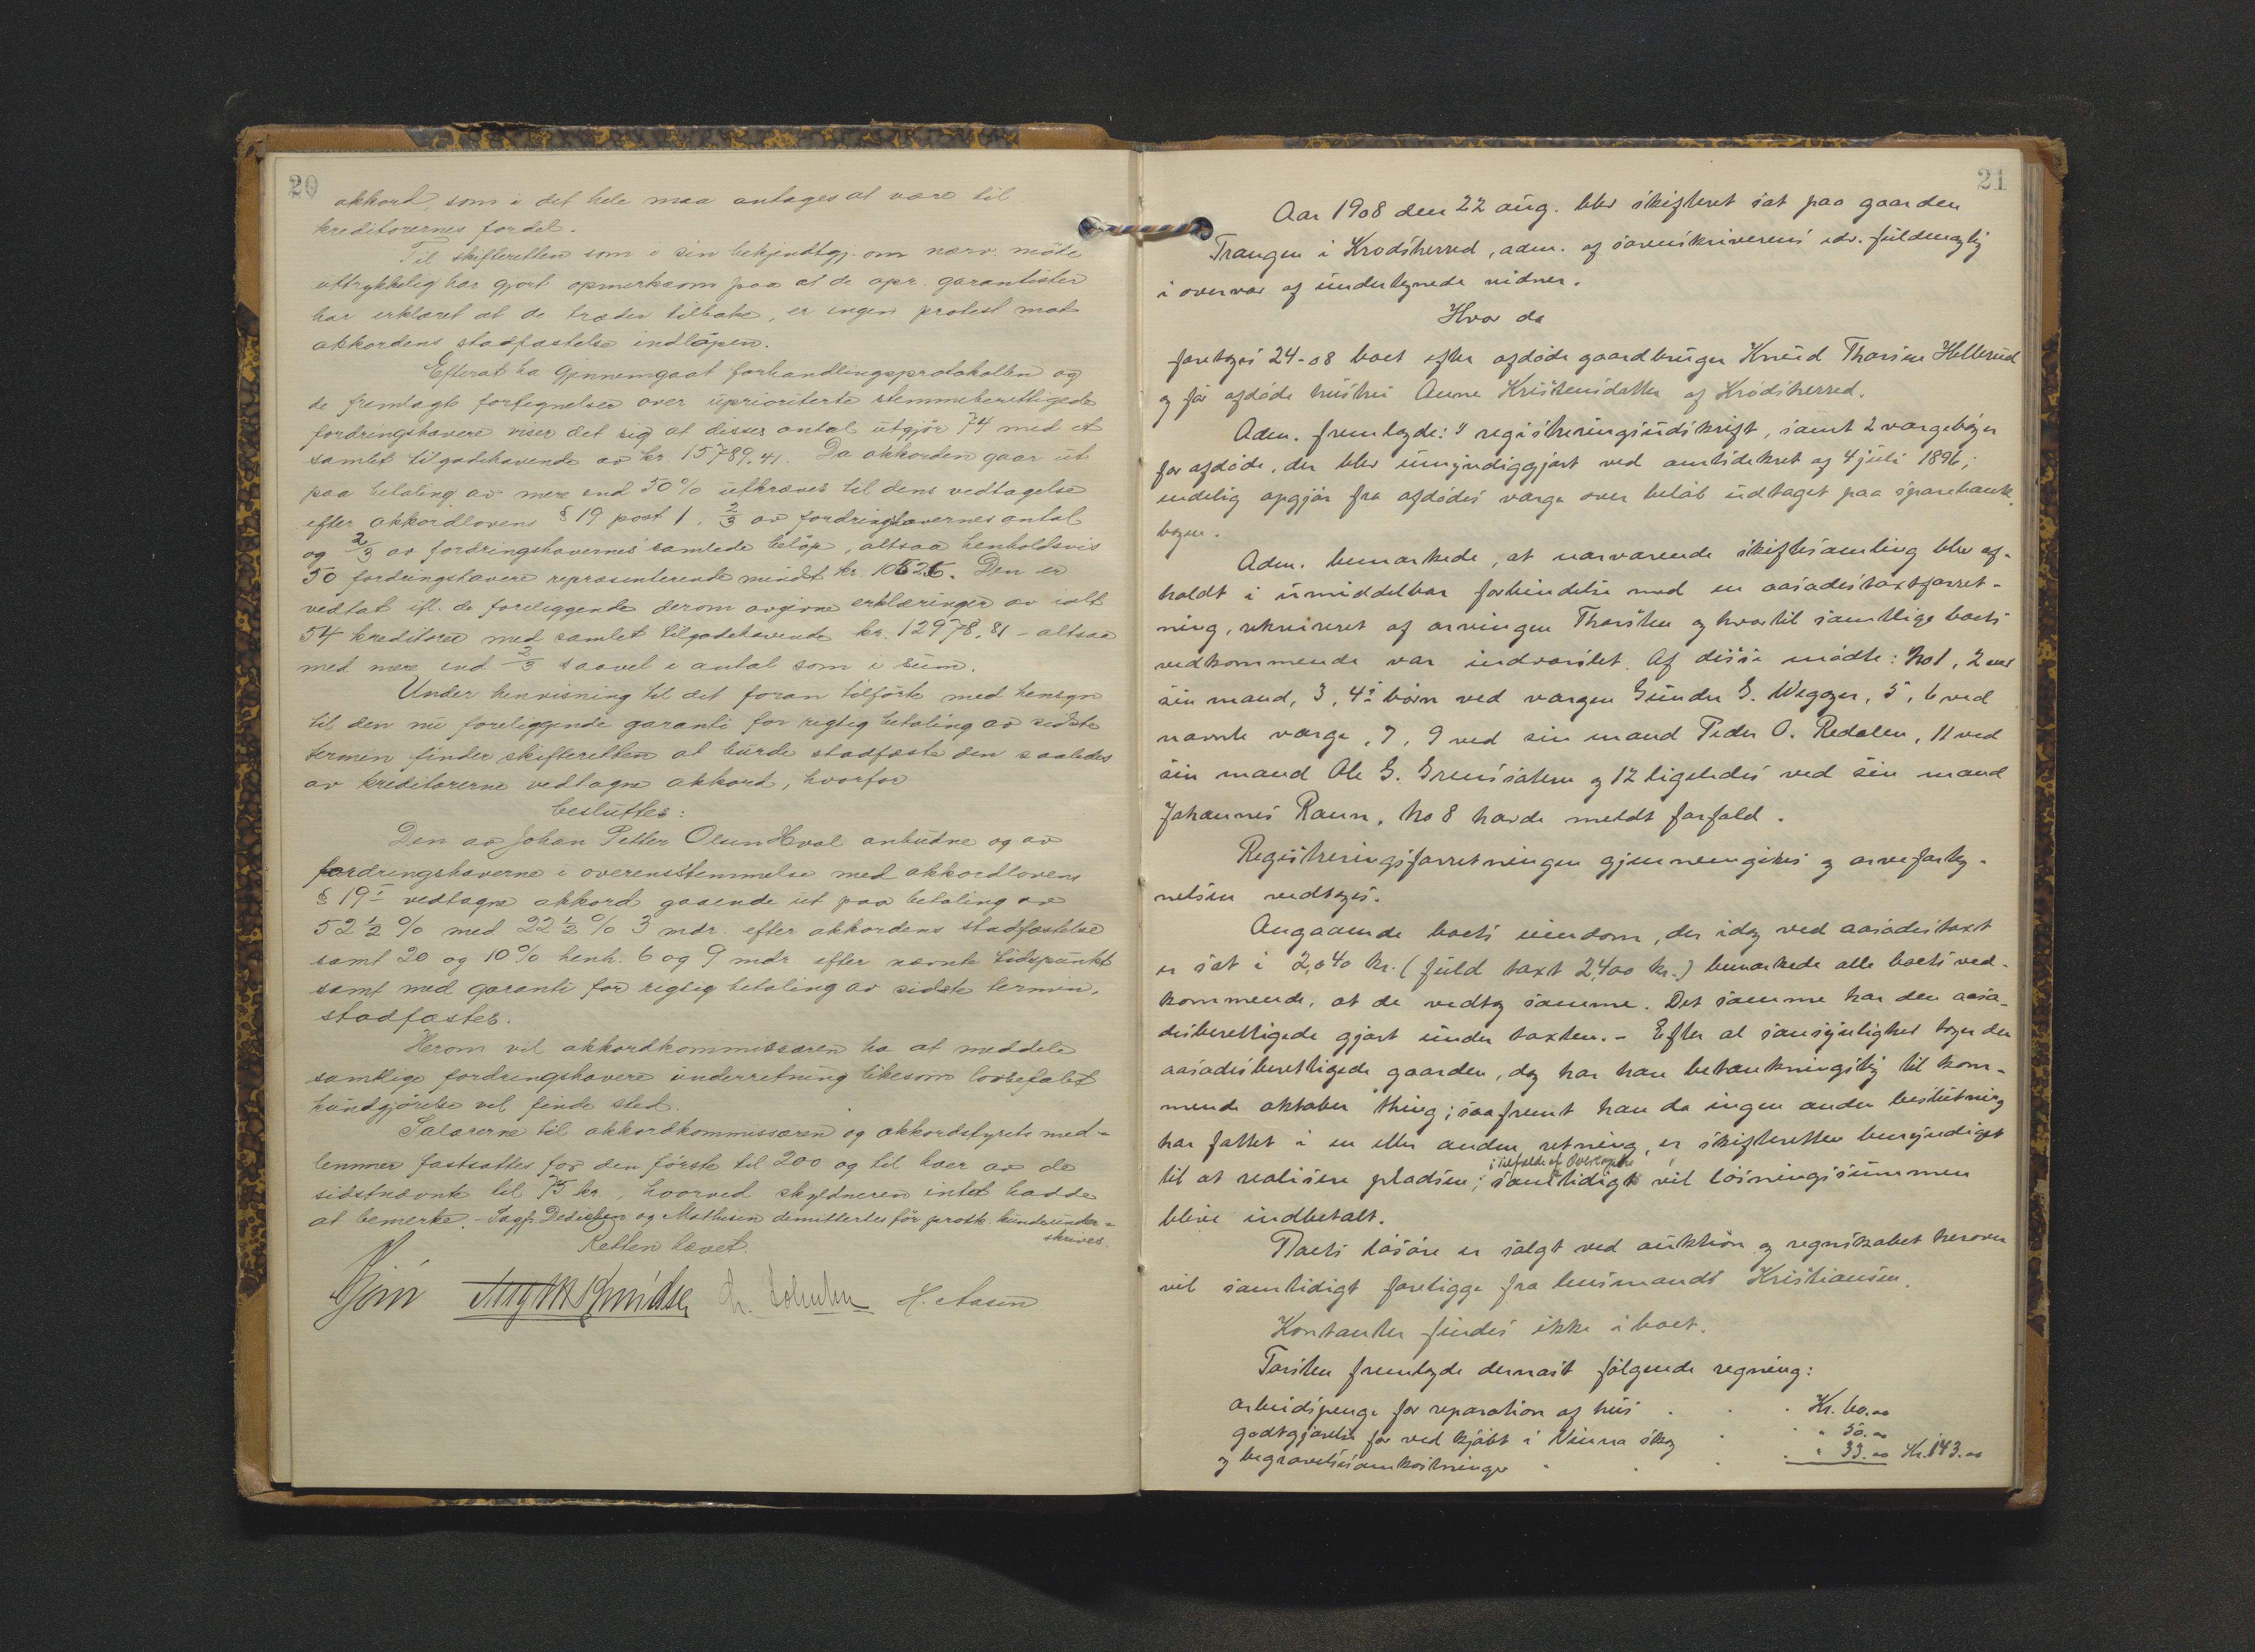 20
akkord, som i det hele maa antages at være til
kreditorernes fordel.
Til skifteretten som i sin bekjendtgj. om nærv. möte
uttrykkelig har gjort opmerksom paa at de opr. garantister
har erklæret at de træder tilbake, er ingen protest mot
akkordens stadfæstelse indlöpen.
Efterat ha gjennemgaat forhandlingsprotokollen og
de fremlagte fortegnelser over uprioriterte stemmeberettigede
fordringshavere viser det sig at disses antal utgjör 74 med et
samlet tilgodehavende av kr. 15789,41. Da akkorden gaar ut
paa betaling av mere end 50% utkræves til dens vedtagelse
efter akkordlovens § 19 post 1, 2/3 av fordringshavernes antal
og 2/3 av fordringshavernes samlede belöp, altsaa henholdsvis
50 fordringshavere repræsenterende mindst kr. 10526. Den er
vedtat ifl. de foreliggende derom avgivne erklæringer av ialt
54 kreditorer med samlet tilgodehavende kr. 12978,81 – altsaa
med mere end 2/3 saavel i antal som i sum.
Under henvisning til det foran tilförte med hensyn
til den nu foreliggende garanti for rigtig betaling av sidste
termin finder skifteretten at burde stadfæste den saaledes
av kreditorerne vedtagne akkord, hvorfor
besluttes:
Den av Johan Petter Olsen Hval anbudne og av
fordringshaverne i overensstemmelse med akkordlovens
§ 19 I vedtagne akkord gaaende ut paa betaling av
52 1/2 % med 22 1/2 % 3 mdr. efter akkordens stadfæstelse
samt 20 og 10% henh. 6 og 9 mdr. efter nævnte tidspunkt
samt med garanti for rigtig betaling av sidste termin,
stadfæstes.
Herom vil akkordkommissæren ha at meddele
samtlige fordringshavere underretning likesom lovbefalet
kundgjörelse vil finde sted.
Salærerne til akkordkommissæren og akkordstyrets med-
lemmer fastsattes for den förste til 200 og til hver av de
sidstnævnte til 75 kr., hvorved skyldneren intet hadde
at bemerke. – Sagf. Dedichen og Mathisen demittertes för protk. kunde under-
skrives.
Retten hævet.
H. Aasen
21
Aar 1908 den 22 aug. blev skifteret sat paa gaarden
Trangen i Krødsherred, adm. af sorenskriverens edsv. fuldmægtig
i overvær af undertegnede vidner.
Hvor da
foretoges 24-08 boet efter afdøde gaardbruger Knud Thorsen Hellerud
og før afdøde hustru Anne Kristensdatter af Krødsherred.
Adm. fremlagde: registreringsudskrift, samt 2 værgebøger
for afdøde, der blev umyndiggjort ved amtsdekret af 4 juli 1896;
endelig opgjør fra afdødes værge over beløb udtaget paa sparebank-
bogen.
Adm. bemærkede, at nærværende skiftesamling blev af-
holdt i umiddelbar forbindelse med en aasædestaxtforret-
ning, rekvireret af arvingen Thorsten og hvortil samtlige boets
vedkommende var indvarslet. Af disse mødte: No 1, 2 ved
sin mand, 3, 4s børn ved værgen Gunder G. Wegger, 5, 6 ved
nævnte værge, 7, 9 ved sin mand Peder O. Redalen, 11 ved
sin mand Ole G. Grensateren og 12 ligeledes ved sin mand
Johannes Raun. No 8 havde meldt forfald.
Registreringsforretningen gjennemgikes og arveforteg-
nelsen vedtoges.
Angaaende boets eiendom, der idag ved aasædestaxt
er sat i 2,040 kr. (fuld taxt 2,400 kr.) bemærkede alle boets ved-
kommende, at de vedtog samme. Det samme har den aasæ-
desberettigede gjort under taxten. – Efter al sansynlighed tager den
aasædesberettigede gaarden, dog har han betænkningstid til kom-
mende oktober thing; saafremt han da ingen anden beslutning
har fattet i en eller anden retning, er skifteretten bemyndiget
til at realisere pladsen; i tilfælde af Overtagelse samtidigt vil løsningssummen
blive indbetalt.
Boets løsøre er solgt ved auktion og regnskabet herover
vil samtidigt foreligge fra lensmand Kristiansen.
Kontanter findes ikke i boet.
Torsten fremlagde dernæst følgende regning:
arbeidspenge for reparation af hus . . . Kr. 60.00
godtgjørelse for ved kjøbt i Vinna skog . . " 50.00
og begravelsesomkostninger . . . . " 33.00 Kr. 143.00